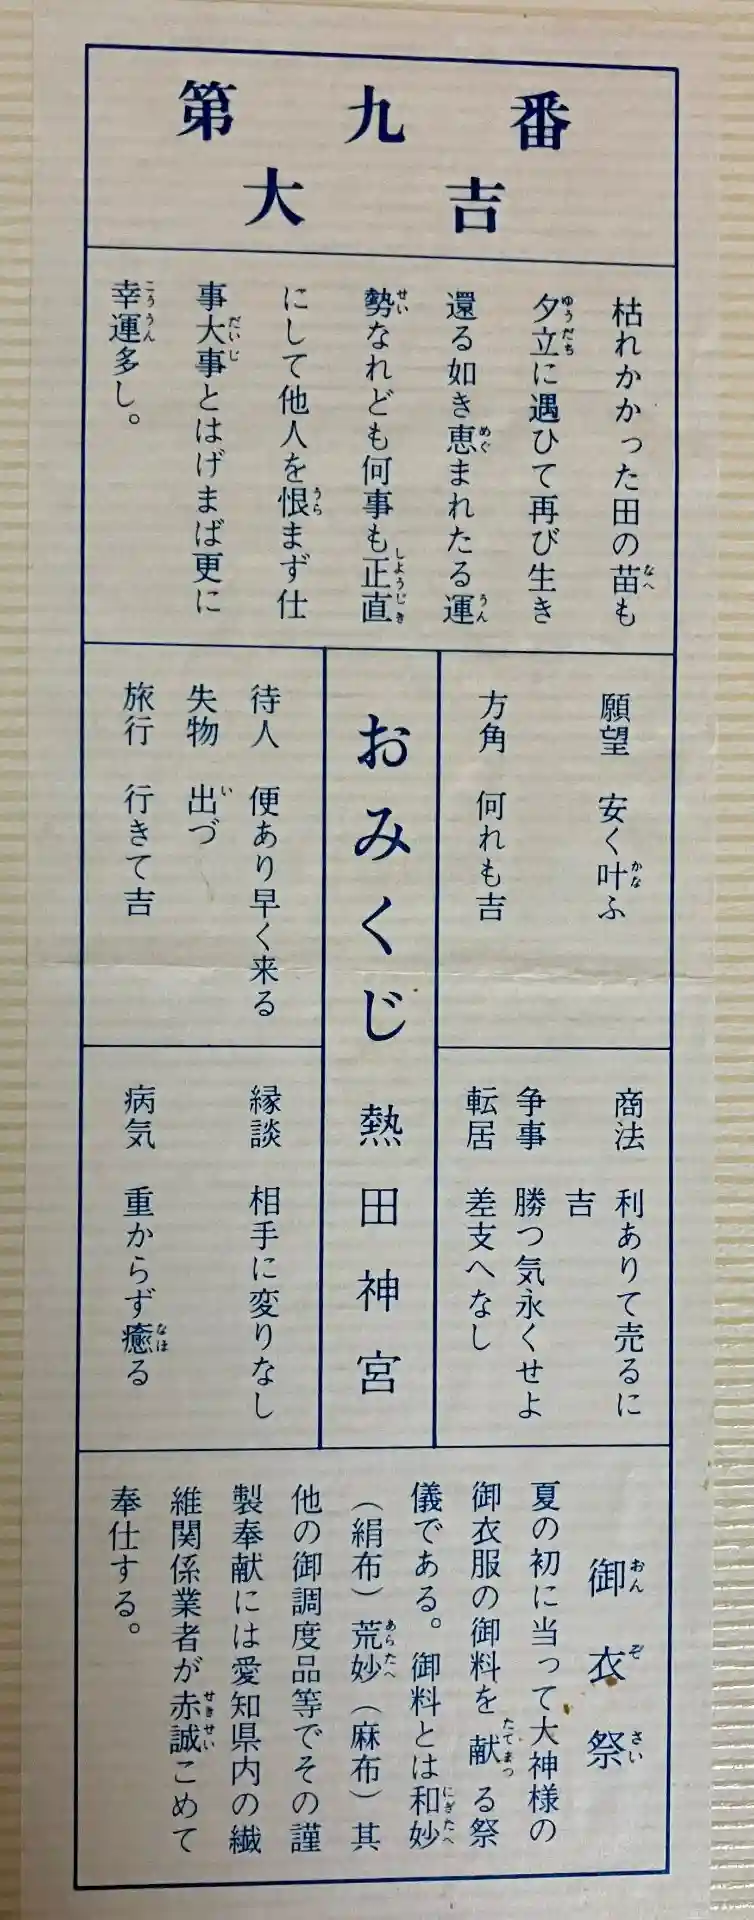 第九番
大吉
枯れかかった田の苗も
夕立に遇ひて再び生き
還る如き恵まれたる運
勢なれども何事も正直
にして他人を恨まず仕
事大事とはげまば更に
幸運多し。
願望 安く叶ふ
方角 何れも吉
商法 利ありて売るに
吉
争事 勝つ気永くせよ
転居 差支へなし
おみくじ 熱田神宮
待人 便あり早く来る
失物 出づ
旅行 行きて吉
縁談 相手に変りなし
病気 重からず癒る
御衣祭
夏の初に当って大神様の
御衣服の御料を献る祭
儀である。御料とは和妙
（絹布）荒妙（麻布）其
他の御調度品等でその謹
製奉献には愛知県内の繊
維関係業者が赤誠こめて
奉仕する。